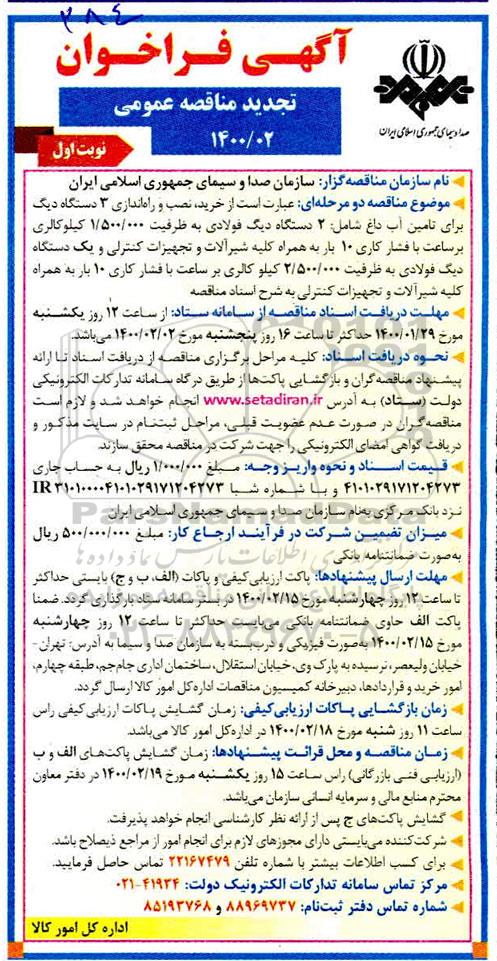 ۳۸٤
آگهی فراخوان
تجدید مناقصه عمومی
۱۴۰۰/۰۲
نوبت اول
صدا و سیمای جمهوری اسلامی ایران
نام سازمان مناقصه‌گزار: سازمان صدا و سیمای جمهوری اسلامی ایران
موضوع مناقصه دو مرحله‌ای: عبارت است از خرید، نصب و راه‌اندازی ۳ دستگاه دیگ
برای تامین آب داغ شامل: ۲ دستگاه دیگ فولادی به ظرفیت ۱/۵۰۰/۰۰۰ کیلوکالری
برساعت با فشار کاری ۱۰ بار به همراه کلیه شیرآلات و تجهیزات کنترلی و یک دستگاه
دیگ فولادی به ظرفیت ۲/۵۰۰/۰۰۰ کیلو کالری بر ساعت با فشار کاری ۱۰ بار به همراه
کلیه شیرآلات و تجهیزات کنترلی به شرح اسناد مناقصه
مهلت دریافت اسناد مناقصه از سامانه ستاد: از ساعت ۱۲ روز یکشنبه
مورخ ۱۴۰۰/۰۱/۲۹ حداکثر تا ساعت ۱۶ روز پنجشنبه مورخ ۱۴۰۰/۰۲/۰۲ می‌باشد.
نحوه دریافت اسناد: کلیه مراحل برگزاری مناقصه از دریافت اسناد تا ارائه
پیشنهاد مناقصه‌گران و بازگشایی پاکت‌ها از طریق درگاه سامانه تدارکات الکترونیکی
دولت (ستاد) به آدرس www.setadiran.ir انجام خواهد شد و لازم است
مناقصه‌گران در صورت عدم عضویت قبلی، مراحل ثبت‌نام در سایت مذکور و
دریافت گواهی امضای الکترونیکی را جهت شرکت در مناقصه محقق سازند.
قیمت اسناد و نحوه واریز وجه: مبلغ ۱/۰۰۰/۰۰۰ ریال به حساب جاری
۴۱۰۱۰۲۹۱۷۱۲۰۴۲۷۳ و با شماره شبا IR ۳۱۰۱۰۰۰۰۴۱۰۱۰۲۹۱۷۱۲۰۴۲۷۳
نزد بانک مرکزی به‌نام سازمان صدا و سیمای جمهوری اسلامی ایران
میزان تضمین شرکت در فرآیند ارجاع کار: مبلغ ۵۰۰/۰۰۰/۰۰۰ ریال
به‌صورت ضمانتنامه بانکی
مهلت ارسال پیشنهادها: پاکت ارزیابی کیفی و پاکات (الف، ب و ج) بایستی حداکثر
تا ساعت ۱۲ روز چهارشنبه مورخ ۱۴۰۰/۰۲/۱۵ در بستر سامانه ستاد بارگذاری گردد. ضمنا
پاکت الف حاوی ضمانتنامه بانکی می‌بایست حداکثر تا ساعت ۱۲ روز چهارشنبه
مورخ ۱۴۰۰/۰۲/۱۵ به‌صورت فیزیکی و درب‌بسته به سازمان صدا و سیما به آدرس: تهران-
خیابان ولیعصر، نرسیده به پارک وی، خیابان استقلال، ساختمان اداری جام‌جم، طبقه چهارم،
امور خرید و قراردادها، دبیرخانه کمیسیون مناقصات اداره‌کل امور کالا ارسال گردد.
زمان بازگشایی پاکات ارزیابی‌کیفی: زمان گشایش پاکات ارزیابی کیفی راس
ساعت ۱۱ روز شنبه مورخ ۱۴۰۰/۰۲/۱۸ در اداره‌کل امور کالا می‌باشد.
زمان مناقصه و محل قرائت پیشنهادها: زمان گشایش پاکت‌های الف و ب
(ارزیابی فنی بازرگانی) راس ساعت ۱۵ روز یکشنبه مورخ ۱۴۰۰/۰۲/۱۹ در دفتر معاون
محترم منابع مالی و سرمایه انسانی سازمان می‌باشد.
گشایش پاکت‌های ج پس از ارائه نظر کارشناسی انجام خواهد پذیرفت.
شرکت‌کننده می‌بایستی دارای مجوزهای لازم برای انجام امور از مراجع ذیصلاح باشد.
برای کسب اطلاعات بیشتر با شماره تلفن ۲۲۱۶۷۴۷۹ تماس حاصل فرمایید.
مرکز تماس سامانه تدارکات الکترونیک دولت: ۴۱۹۳۴-۰۲۱
شماره تماس دفتر ثبت‌نام: ۸۸۹۶۹۷۳۷ و ۸۵۱۹۳۷۶۸
اداره کل امور کالا